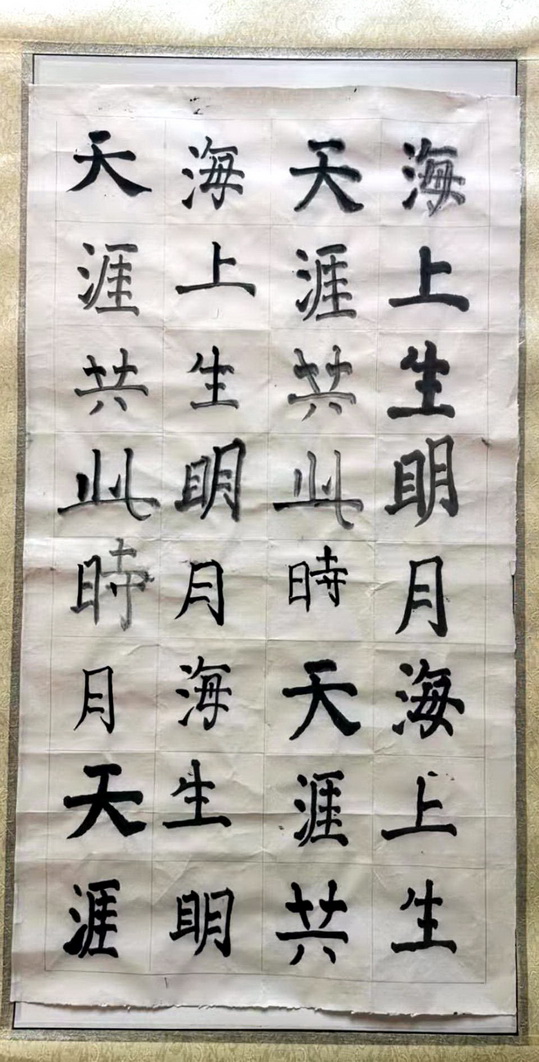 海上生明月海上生
天涯共此時天涯共
海上生明月海生明
天涯共此時月天涯